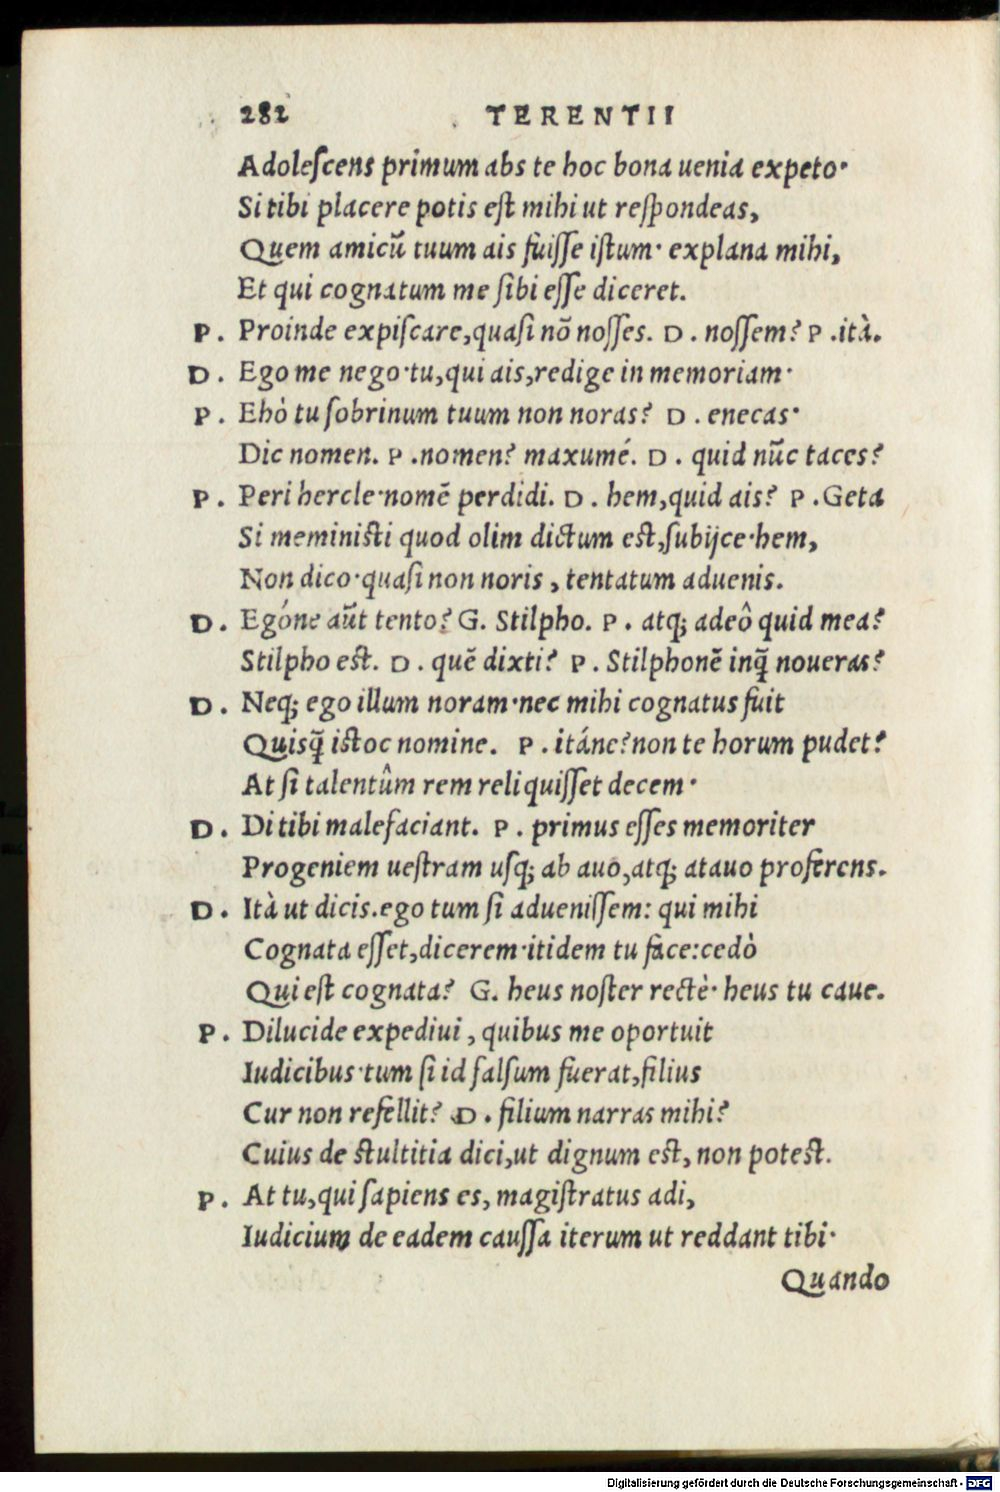 282 TERENTII
Adoleſcens primum abs te hoc bona uenia expeto·
Si tibi placere potis eſt mihi ut reſpondeas,
Quem amicū tuum ais fuiſſe iſtum· explana mihi,
Et qui cognatum me ſibi eſſe diceret.
P. Proinde expiſcare,quaſi nō noſſes. D. noſſem? P.ità.
D. Ego me nego·tu,qui ais,redige in memoriam·
P. Ehò tu ſobrinum tuum non noras? D. enecas·
Dic nomen. P.nomen? maxumé. D. quid nūc taces?
P. Peri hercle·nomē perdidi. D. hem,quid ais? P.Geta
Si meminiſti quod olim dictum eſt,ſubijce·hem,
Non dico·quaſi non noris, tentatum aduenis.
D. Egóne aūt tento? G. Stilpho. P. atq; adeô quid mea?
Stilpho eſt. D. quē dixti? P. Stilphonē inq̄ noueras?
D. Neq; ego illum noram·nec mihi cognatus fuit
Quisq̄ iſtoc nomine. P. itáne?non te horum pudet?
At ſi talentûm rem reliquiſſet decem·
D. Di tibi malefaciant. P. primus eſſes memoriter
Progeniem ueſtram uſq; ab auo,atq; atauo proferens.
D. Ità ut dicis.ego tum ſi adueniſſem: qui mihi
Cognata eſſet,dicerem·itidem tu face:cedò
Qui eſt cognata? G. heus noſter rectè· heus tu caue.
P. Dilucide expediui, quibus me oportuit
Iudicibus·tum ſi id falſum fuerat,filius
Cur non refellit? D. filium narras mihi?
Cuius de ſtultitia dici,ut dignum eſt, non poteſt.
P. At tu,qui ſapiens es, magiſtratus adi,
Iudicium de eadem cauſſa iterum ut reddant tibi·
Quando
Digitalisierung gefördert durch die Deutsche Forschungsgemeinschaft - DFG